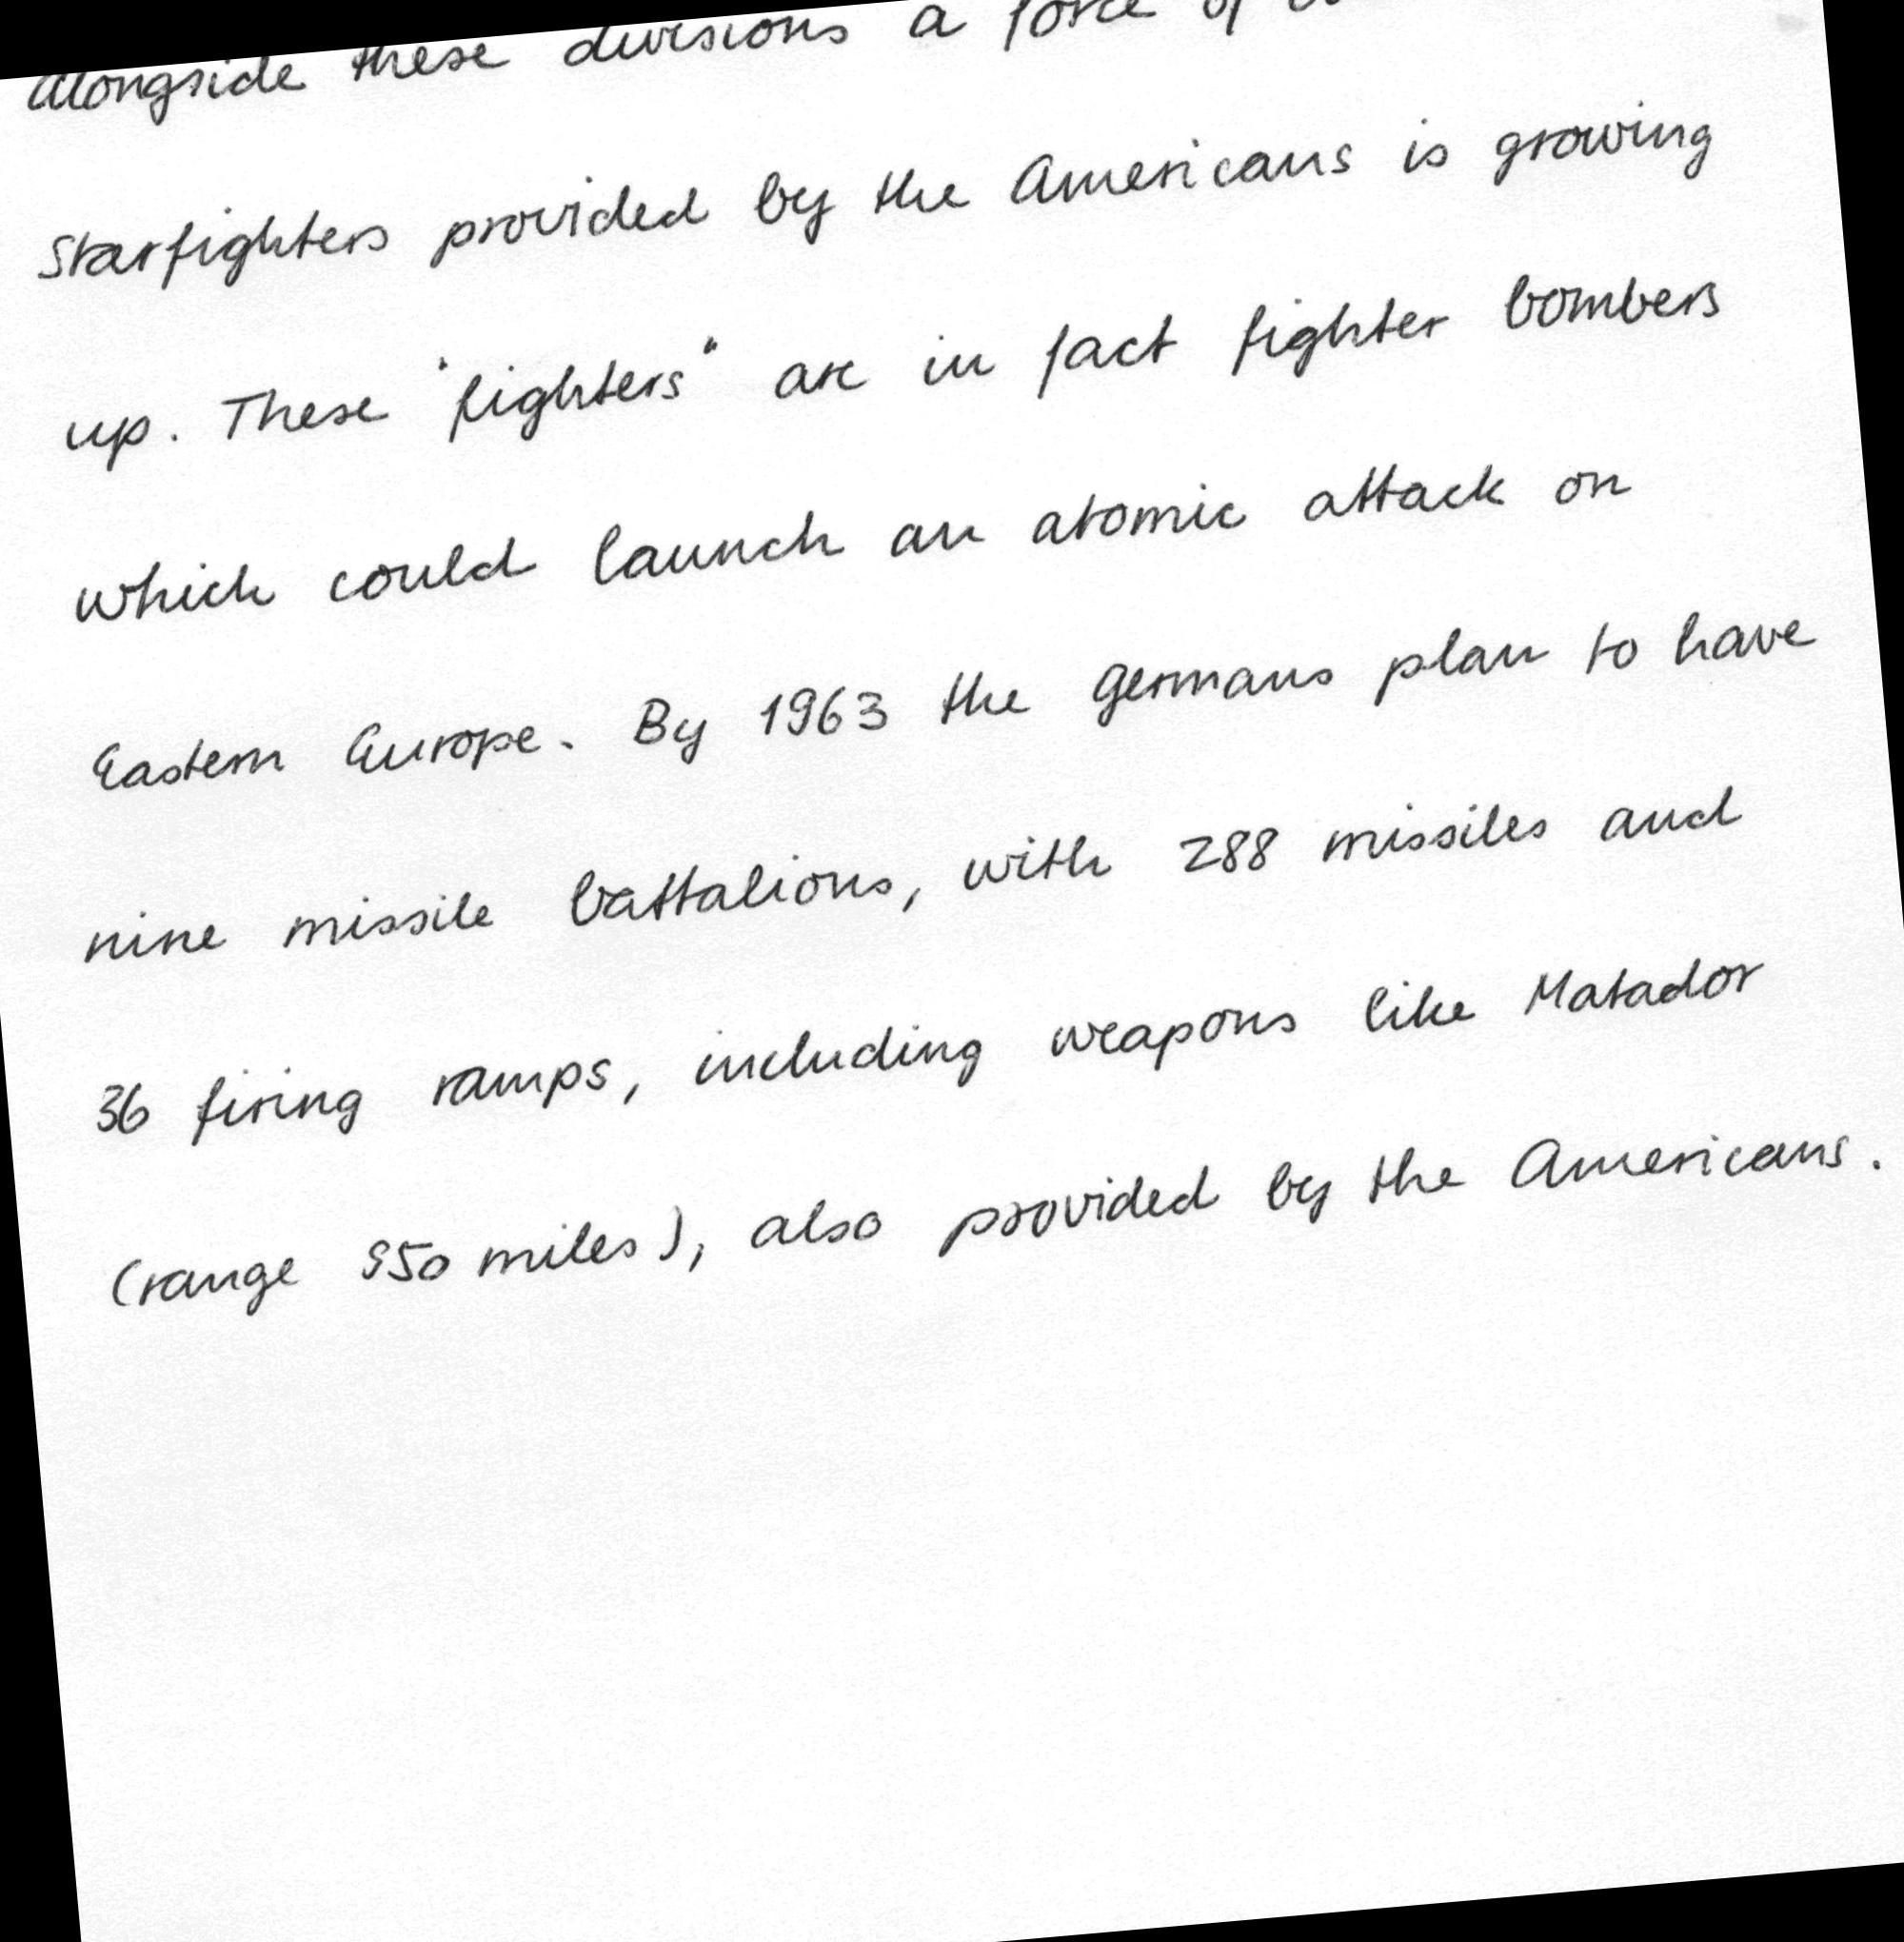 alongside these divisions a force of
Starfighters provided by the Americans is growing
up. These "fighters" are in fact fighter bombers
which could launch an atomic attack on
Eastern Europe. By 1963 the Germans plan to have
nine missile battalions, with 288 missiles and
36 firing ramps, including weapons like Matador
(range 950 miles), also provided by the Americans.